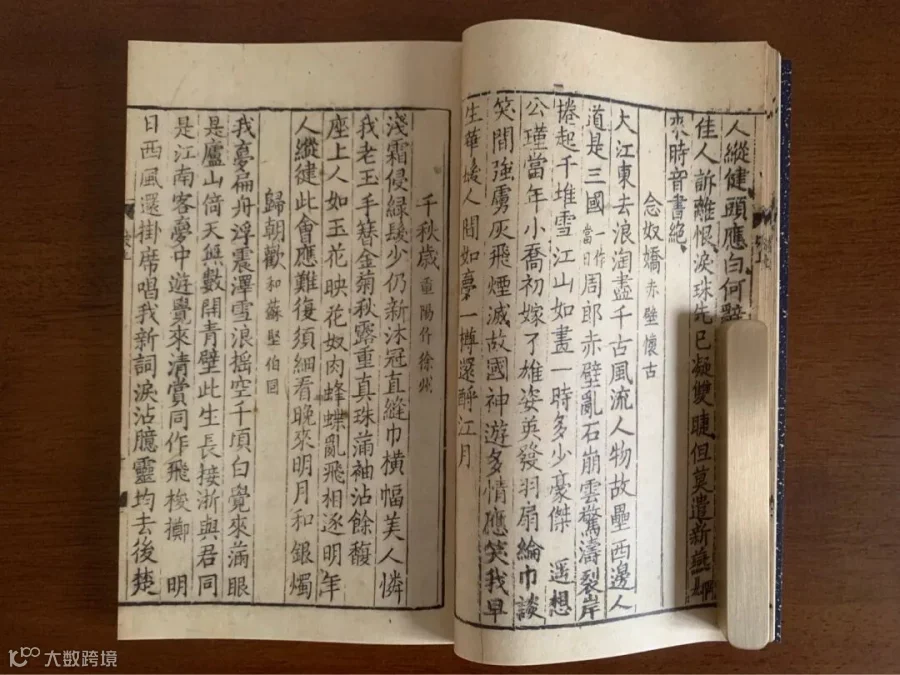 人縱健頭應白何辭
佳人訴離恨淚珠先已凝雙睫但莫遣新燕
來時音書絕
念奴嬌 赤壁懷古
大江東去浪淘盡千古風流人物故壘西邊人
道是三國當日作周郎赤壁亂石崩雲驚濤裂岸
捲起千堆雪江山如畫一時多少豪傑 遥想
公瑾當年小喬初嫁了雄姿英發羽扇綸巾談
笑間強虜灰飛煙滅故國神遊多情應笑我早
生華髮人間如夢一樽還酹江月
千秋歲 重陽作徐州
淺霜侵綠髮少仍新沐冠直縫巾橫幅美人憐
我老玉手簪金菊秋露重真珠滿袖沾餘馥
座上人如玉花映花奴肉蜂蝶亂飛相逐明年
人縱健此會應難復須細看晚來明月和銀燭
歸朝歡 和蘇堅伯固
我夢扁舟浮震澤雪浪搖空千頃白覺來滿眼
是廬山倚天無數開青壁此生長接淅與君同
是江南客夢中遊覺來清賞同作飛梭擲 明
日西風還掛席唱我新詞淚沾臆靈均去後楚
大数跨境